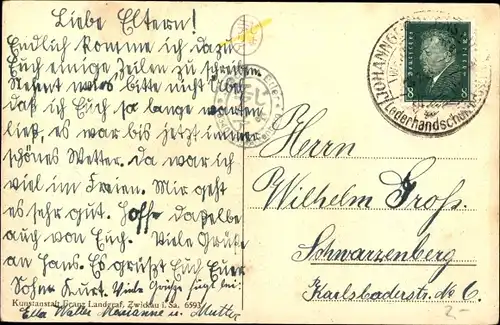 Liebe Eltern!
Endlich komme ich dazu
Euch einige Zeilen zu schreiben.
bitte nicht übel
daß ich Euch so lange warten
ließ, es war bis jetzt immer
schönes Wetter. Da war ich
viel im Freien. Mir geht
es sehr gut. Hoffe dasselbe
auch von Euch. Viele Grüße
an Hans. Es grüßt Euch Euer
Sohn Kurt. Viele Grüße fügt bei:
Ella Walter Marianne u. Mutter
Kunstanstalt Franz Landgraf, Zwickau i. Sa. 6593
JOHANNGE
Lederhandschuh
Deutsches Reich
8 8
Herrn
Wilhelm Groß.
Schwarzenberg
Karlsbaderstr. No 6.
2-